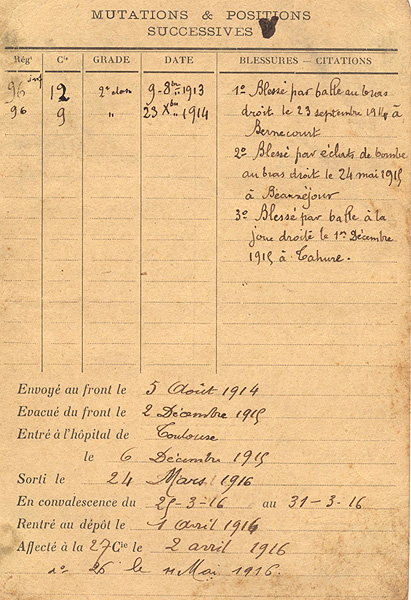 MUTATIONS & POSITIONS
SUCCESSIVES
Régt Cie GRADE DATE BLESSURES — CITATIONS
96 inf 12 2e clas 9 - 8bre 1913
96 9 " 23 Xbre 1914
1o Blessé par balle au bras
droit le 23 septembre 1914 à
Bernecourt
2o Blessé par éclats de bombe
au bras droit le 24 mai 1915
à Beauséjour
3o Blessé par balle à la
joue droite le 1er Décembre
1915 à Tahure.
Envoyé au front le 5 Août 1914
Evacué du front le 2 Décembre 1915
Entré à l'hôpital de Toulouse
le 6 Décembre 1915
Sorti le 24 Mars 1916
En convalescence du 25-3-16 au 31-3-16
Rentré au dépôt le 1 avril 1916
Affecté à la 27 Cie le 2 avril 1916
do 26 le 11 Mai 1916.